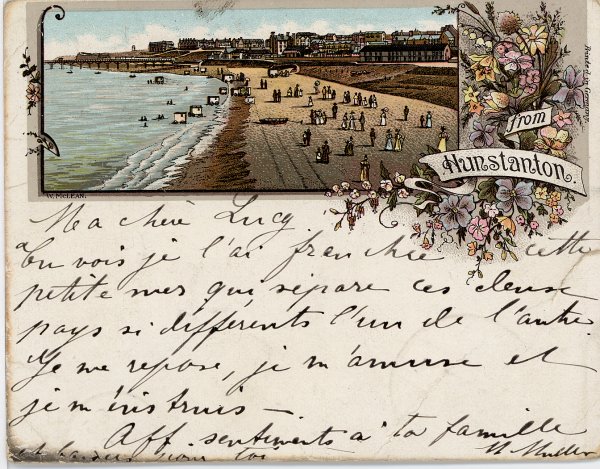 Made in Germany
from
Hunstanton.
W. McLEAN.
Ma chère Lucy
Tu vois je l'ai franchie cette
petite mer qui sépare ces deux
pays si différents l'un de l'autre.
Je me repose, je m'amuse et
je m'instruis —
Aff. sentiments à ta famille
et baisers pour toi